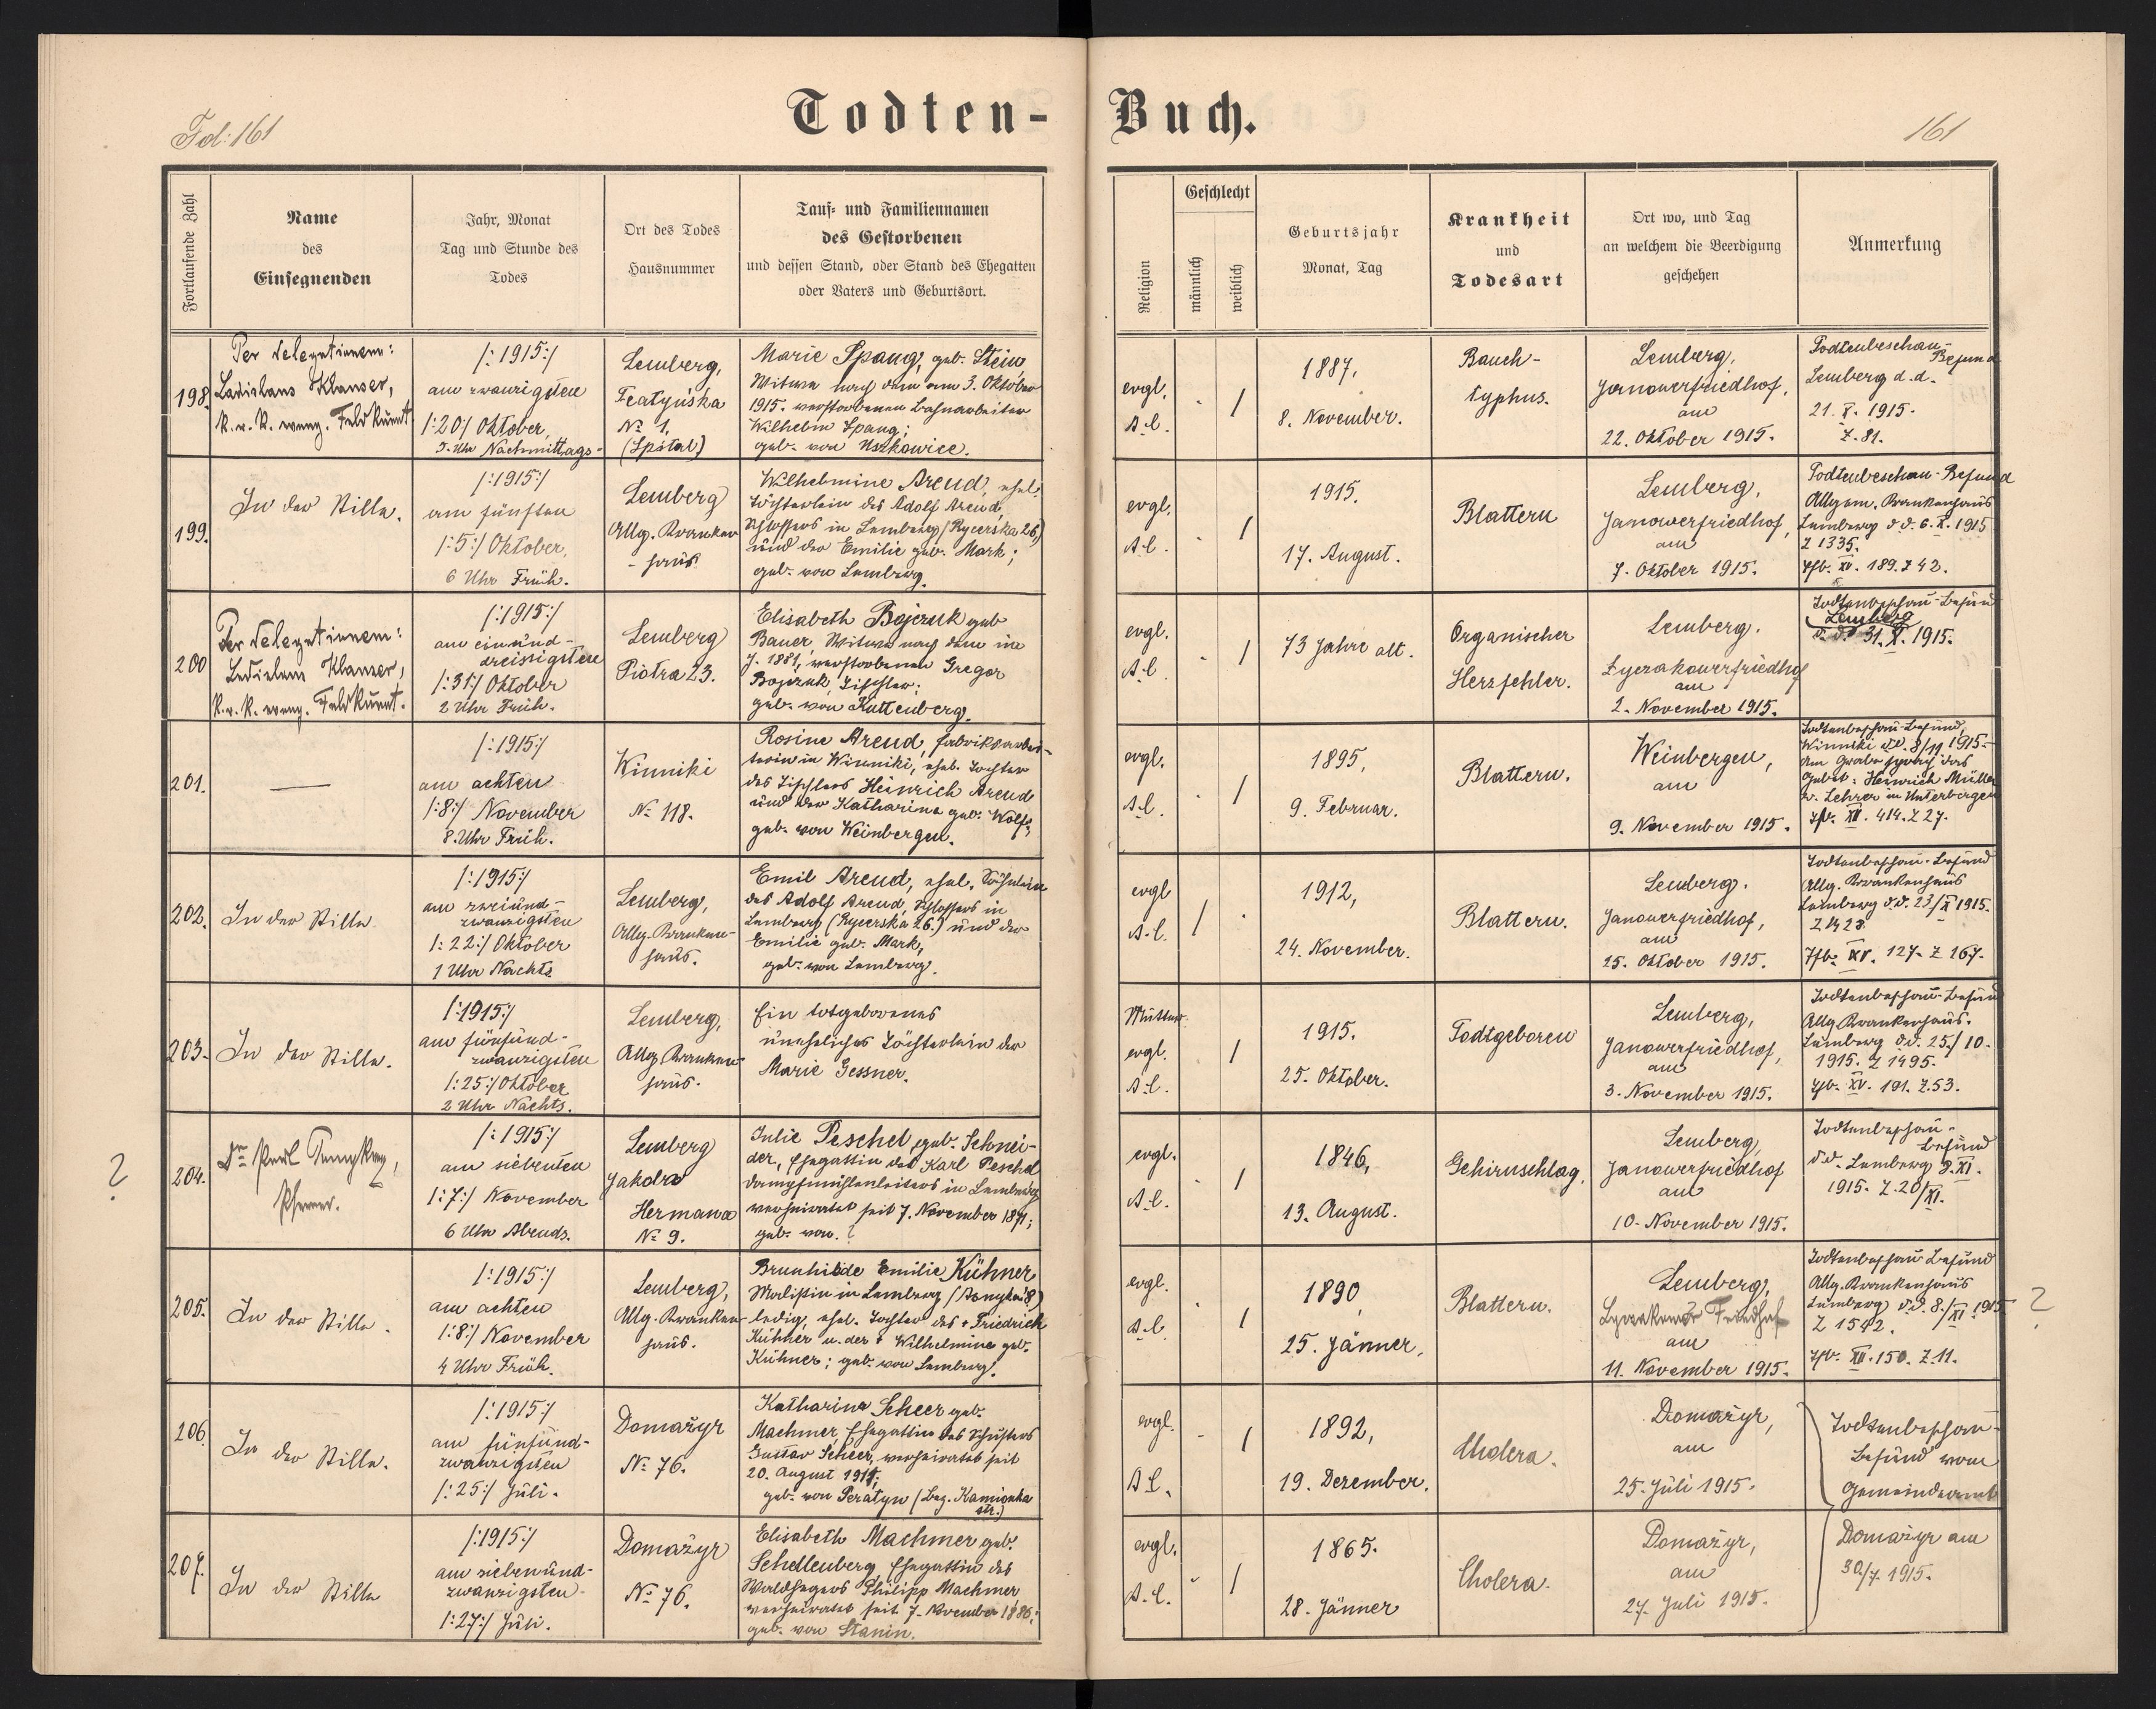 Todten-Buch.
Fol: 161
161
Fortlaufende Zahl
Name
des
Einsegnenden
Jahr, Monat
Tag und Stunde des
Todes
Ort des Todes
Hausnummer
Tauf- und Familiennamen
des Gestorbenen
und dessen Stand, oder Stand des Ehegatten
oder Vaters und Geburtsort.
Religion
Geschlecht
männlich
weiblich
Geburtsjahr
Monat, Tag
Krankheit
und
Todesart
Ort wo, und Tag
an welchem die Beerdigung
geschehen
Anmerkung
198.
Per delegationem:
Ladislaus Klauser,
k. u. k. evang. Feldkurat
/:1915:/
am zwanzigsten
/:20:/ Oktober,
5. Uhr Nachmittags-
Lemberg,
№ 1.
(Spital)
Marie Spang, geb. Stein,
Witwe nach dem am 3. Oktober
1915. verstorbenen Bahnarbeiter
Wilhelm Spang;
geb. von Uszkowice.
evgl.
A.C.
- /
1887,
8. November.
Bauch-
typhus.
Lemberg,
Janowerfriedhof,
am
22. Oktober 1915.
Todtenbeschau-
Befund
Lemberg d.d.
21. X. 1915.
Z. 81.
199.
In der Stille.
/:1915:/
am fünften
/:5:/ Oktober,
6 Uhr Früh.
Lemberg
Allg. Kranken
- haus
Wilhelmine Arend, ehel.
Töchterlein des Adolf Arend,
Schlossers in Lemberg (Rycerska 26.)
und der Emilie geb. Mark;
geb. von Lemberg.
evgl.
A.C.
- /
1915.
17. August.
Blattern
Lemberg,
Janowerfriedhof,
am
7. Oktober 1915.
Todtenbeschau-Befund
Allgem. Krankenhaus
Lemberg d.d. 6. X. 1915
Z 1335.
Tfb. XV. 189. Z 42.
200
Per delegationem:
Ladislaus Klauser,
k. u. k. evang. Feldkurat.
/:1915:/
am einund-
dreissigsten
/:31:/ Oktober
2 Uhr Früh.
Lemberg
Piotra 23.
Elisabeth Bojczuk geb
Bauer, Witwe nach dem im
J. 1881, verstorbenen Gregor
Bojczuk, Tischler;
geb. von Kuttenberg.
evgl.
A.C.
- /
73 Jahre alt.
Organischer
Herzfehler.
Lemberg.
Lyczakowerfriedhof
am
2. November 1915.
Todtenbeschau-Befund
Lemberg
d. d. 31. X. 1915.
201.
—
/:1915:/
am achten
/:8:/ November
8. Uhr Früh.
Winniki
№ 118.
Rosine Arend, Fabriksarbei-
terin in Winniki, ehel. Tochter
des Tischlers Heinrich Arend
und der Katharina geb. Wolf;
geb. von Weinbergen.
evgl.
A.C.
- /
1895,
9. Februar.
Blattern.
Weinbergen,
am
9. November 1915.
Todtenbeschau-Befund,
Winniki d.d. 8/11 1915.
Am Grabe sprach das
Gebet: Heinrich Müller
Lehrer in Unterbergen
Tfb. XII. 414. Z 27.
202.
In der Stille
/:1915:/
am zweiund-
zwanzigsten
/:22:/ Oktober
1 Uhr Nachts
Lemberg,
Allg. Kranken-
haus.
Emil Arend, ehel. Söhnlein
des Adolf Arend, Schlossers in
Lemberg (Rycerska 26.) und der
Emilie geb. Mark,
geb. von Lemberg.
evgl
A.C.
/ .
1912,
24. November.
Blattern.
Lemberg.
Janowerfriedhof,
am
25. Oktober 1915.
Todtenbeschau-Befund
Allg. Krankenhaus
Lemberg d.d. 23./X 1915.
Z 1423
Tfb. XV. 127. Z 167.
203.
In der Stille.
/:1915:/
am fünfund-
zwanzigsten
/:25:/ Oktober
2 Uhr Nachts.
Lemberg,
Allg. Kranken-
haus.
Ein totgeborenes
uneheliches Töchterlein der
Marie Gessner.
Mutter
evgl.
A.C.
/
1915.
25. Oktober.
Todtgeboren
Lemberg,
Janowerfriedhof,
am
3. November 1915.
Todtenbeschau-Befund
Allg. Krankenhaus.
Lemberg d.d. 25./10.
1915. Z 1495.
Tfb. XV. 191. Z. 53.
?
204.
Pfarrer.
/:1915:/
am siebenten
/:7:/ November
6 Uhr Abends.
Lemberg
Jakoba
Hermana
№ 9.
Julie Peschel, geb. Schnei-
der, Ehegattin des Karl Peschel
Dampfmühlenleiters in Lemberg
verheiratet seit 7. November 1871;
geb. von. ?
evgl.
A.C.
- /
1846,
13. August.
Gehirnschlag.
Lemberg,
Janowerfriedhof
am
10. November 1915.
Todtenbeschau-
Befund
d.d. Lemberg 8. XI.
1915. Z. 20/XI.
205.
In der Stille.
/:1915:/
am achten
/:8:/ November
4 Uhr Früh.
Lemberg,
Allg. Kranken-
haus.
Brunhilde Emilie Kühner
Modistin in Lemberg
ledig, ehel. Tochter des + Friedrich
Kühner u. der + Wilhelmine geb.
Kühner; geb. von Lemberg.
evgl.
A.C.
- /
1890
25. Jänner,
Blattern.
Lemberg,
Lyczakower Friedhof
am
11. November 1915.
Todtenbeschau Befund
Allg. Krankenhaus
Lemberg d.d. 8./XI 1915
Z 1542.
Tfb. XII. 150. Z. 11.
?
206.
In der Stille.
/:1915:/
am fünfund-
zwanzigsten
/:25:/ Juli.
Domażyr
№ 76.
Katharina Scheer geb.
Machmer, Ehegattin des Schusters
Gustav Scheer, verheiratet seit
20. August 1911;
geb. von Peratyn (Bez. Kamionka
str.)
evgl.
A.C.
- /
1892,
19. Dezember.
Cholera.
Domażyr,
am
25. Juli 1915.
Todtenbeschau-
Befund vom
Gemeindeamt
207.
In der Stille
/:1915:/
am siebenund-
zwanzigsten
/:27:/ Juli.
Domażyr
№ 76.
Elisabeth Machmer geb.
Schellenberg, Ehegattin des
Waldhegers Philipp Machmer
verheiratet seit 7. November 1886;
geb. von Stanin.
evgl.
A.C.
- /
1865.
28. Jänner
Cholera.
Domażyr,
am
27. Juli 1915.
Domażyr am
30/7. 1915.